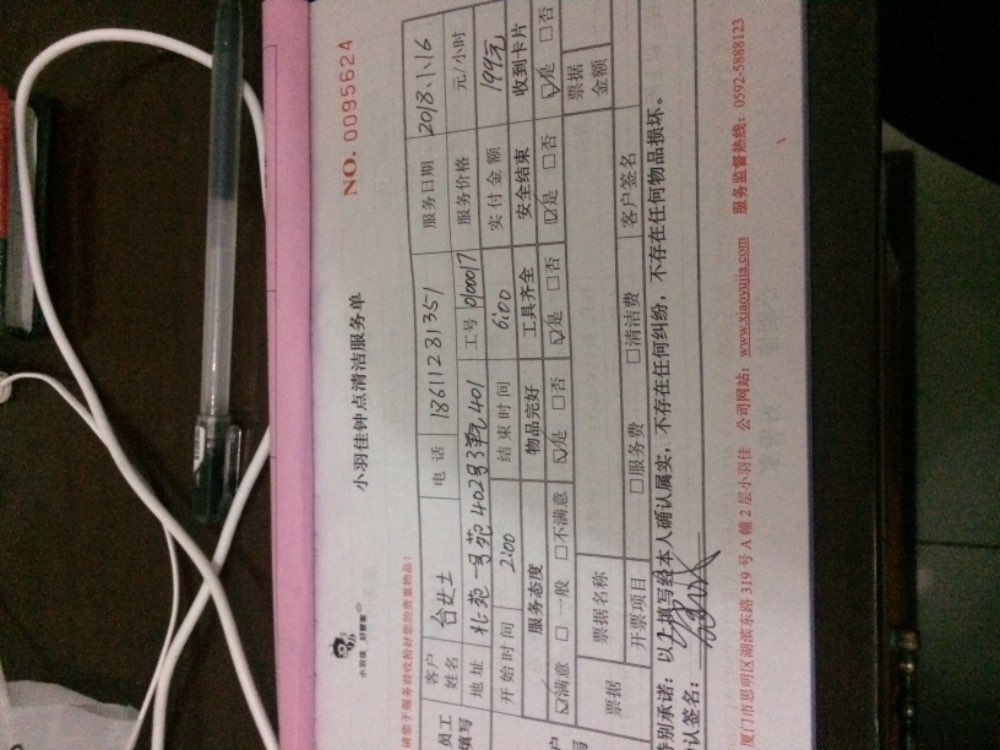 小羽佳钟点清洁服务单
NO. 0095624
小羽佳，好管家
请您于服务前收拾好您的贵重物品！
员工填写 客户姓名 台女士 电话 18611281351 服务日期 2018.1.16
地址 北苑一号苑402号3单元401 工号 0100017 服务价格 元/小时
开始时间 2:00 结束时间 6:00 实付金额 199元
服务态度 物品完好 工具齐全 安全结束 收到卡片
☑满意 □一般 □不满意 ☑是 □否 ☑是 □否 ☑是 □否 ☑是 □否
票据 票据名称 票据金额
开票项目 □服务费 □清洁费 客户签名
特别承诺：以上填写经本人确认属实，不存在任何纠纷，不存在任何物品损坏。
确认签名：
厦门市思明区湖滨东路 319 号 A 幢 2 层小羽佳 公司网站：www.xiaoyujia.com 服务监督热线：0592-5888123